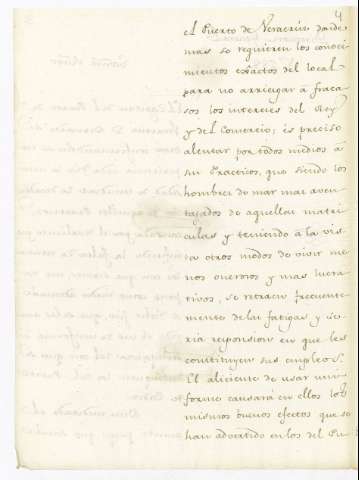 4
el Puerto de Veracruz donde
mas se requieren los conoci
mientos exâctos del local
para no arriesgar à fraca
sos los intereses del Rey
y del Comercio; es preciso
alentar por todos medios à
sus Practicos, que siendo los
hombres de mar mas aven
tajados de aquellas matri
culas y teniendo à la vis
ta otros modos de vivir me
nos onerosos y mas lucra
tivos, se retraen frecuente
mente de las fatigas y se
ria responsion en que les
constituyen sus empleos.
El aliciente de usar uni
forme causarà en ellos los
mismos buenos efectos que se
han advertido en los del Pu